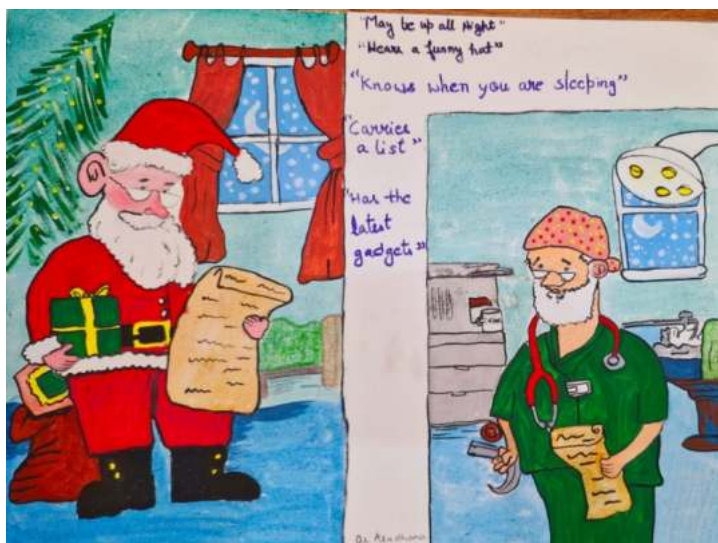 "May be up all Night"
"Wears a funny hat"
"Knows when you are sleeping"
"Carries
a list"
"Has the
latest
gadgets"
Dr